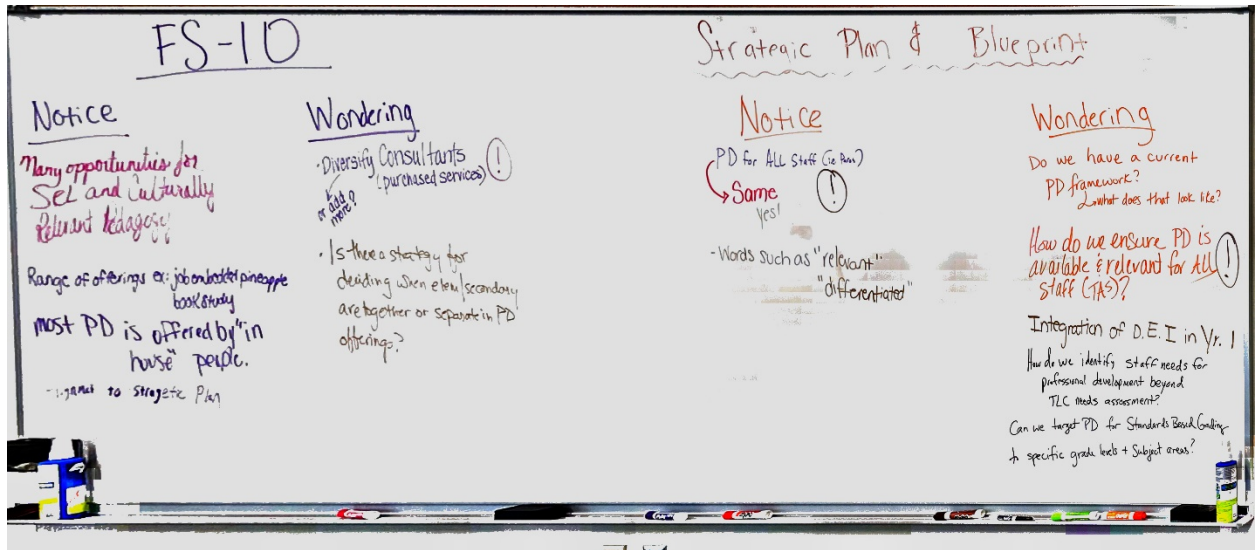 FS-10
Notice
Many opportunities for
SEL and Culturally
Relevant Pedagogy
Range of offerings ex: job embedded pineapple
book study
most PD is offered by "in
house" people.
to Strategic Plan
Wondering
· Diversify Consultants
(purchased services) !
or add
more?
· Is there a strategy for
deciding when elem/secondary
are together or separate in PD
offerings?
Strategic Plan &
Blueprint
Notice
PD for ALL Staff (ie Para?)
Same !
Yes!
- Words such as "relevant"
"differentiated"
Wondering
Do we have a current
PD framework?
what does that look like?
How do we ensure PD is
available & relevant for All !
staff (TAS)?
Integration of D.E.I in Yr. 1
How do we identify staff needs for
professional development beyond
TLC needs assessment?
Can we target PD for Standards Based Grading
to specific grade levels + Subject areas?